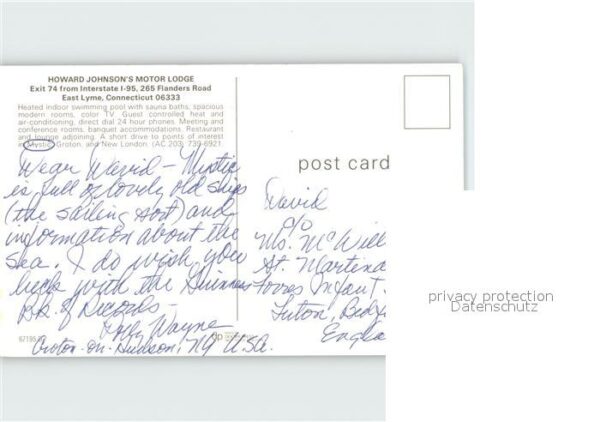 HOWARD JOHNSON'S MOTOR LODGE
Exit 74 from Interstate I-95, 265 Flanders Road
East Lyme, Connecticut 06333
Heated indoor swimming pool with sauna baths, spacious
modern rooms, color TV. Guest controlled heat and
air-conditioning, direct dial 24 hour phones. Meeting and
conference rooms, banquet accommodations. Restaurant
and lounge adjoining. A short drive to points of interest
in Mystic, Groton, and New London. (AC 203) 739-6921
Dear David – Mystic
is full of lovely old ships
(the sailing sort) and
information about the
sea. I do wish you
luck with the Guinness
Bk. of Records –
Wayne
Croton-on-Hudson, NY USA.
post card
David
c/o
Ms. McWill
St. Martina
Torres Infant
Luton, Beds
Engla
privacy protection
Datenschutz